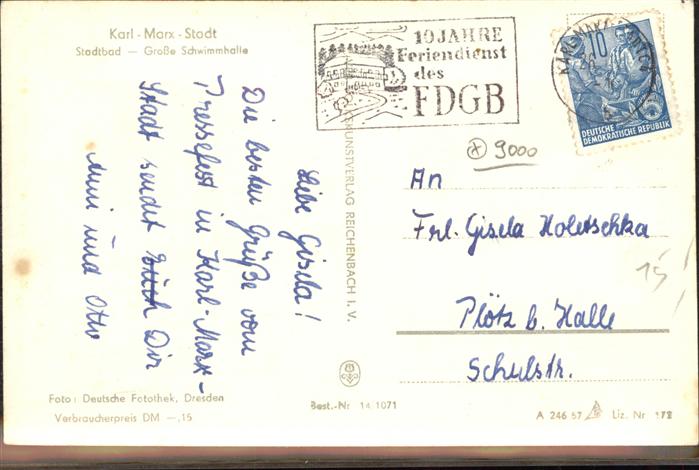 Karl-Marx-Stadt
Stadtbad — Große Schwimmhalle
Liebe Gisela!
Die besten Grüße vom
Pressefest in Karl-Marx-
Stadt sendet Euch Dir
Anni und Otto
Foto: Deutsche Fotothek, Dresden
Verbraucherpreis DM —,15
KUNSTVERLAG REICHENBACH I. V.
Best.-Nr. 14 1071
10 JAHRE
Feriendienst
des
FDGB
10
DEUTSCHE
DEMOKRATISCHE REPUBLIK
9000
An
Frl. Gisela Holetschka
Plötz b. Halle
Schulstr.
15
A 246 57 Liz. Nr. 172